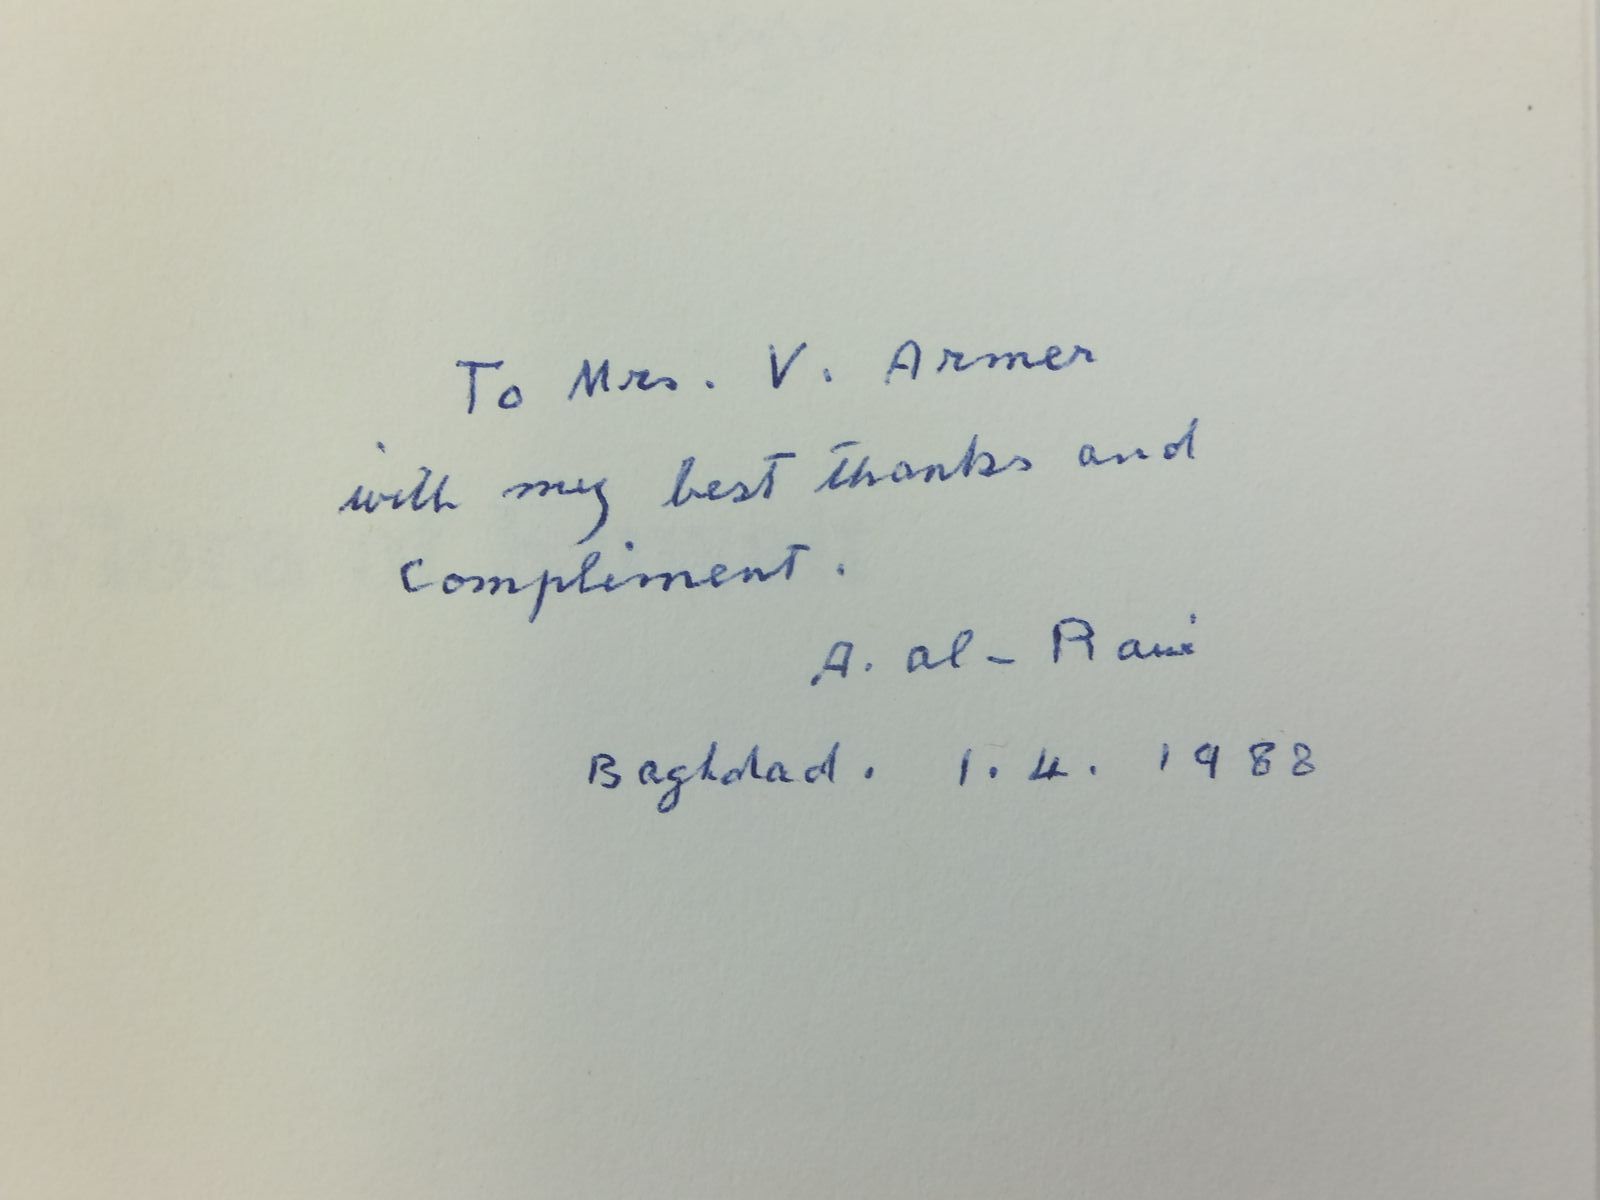 To Mrs. V. Armer
with my best thanks and
Compliment.
A. al-Rawi
Baghdad. 1.4. 1988